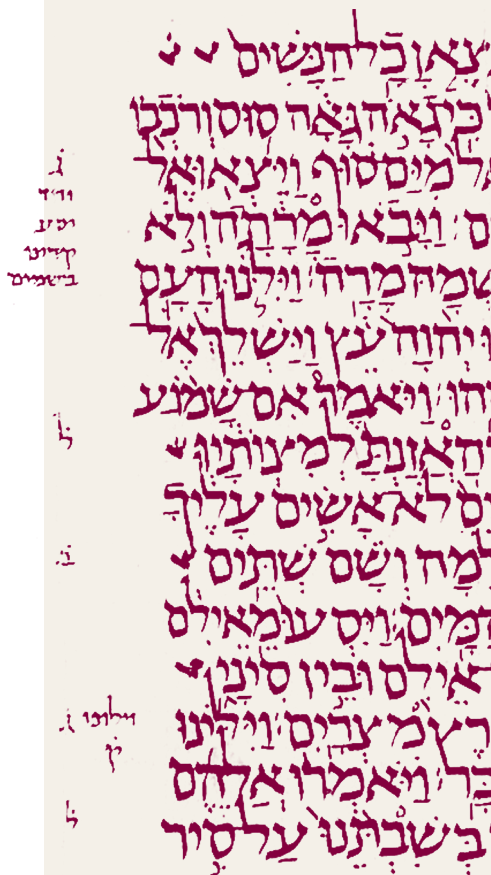 צֶאןָ כָל הַנָּשִׁים
כִּי גָאֹה גָּאָה סוּס וְרֹכְבוֹ
מִיַּם סוּף וַיֵּצְאוּ אֶל
ם׃ וַיָּבֹאוּ מָרָתָה וְלֹא
שְׁמָהּ מָרָה׃ וַיִּלֹּנוּ הָעָם
יְהוָה עֵץ וַיַּשְׁלֵךְ אֶל
הוּ׃ וַיֹּאמֶר אִם שָׁמֹעַ
הַאֲזַנְתָּ לְמִצְוֺתָיו
ים לֹא אָשִׂים עָלֶיךָ
מָה וְשָׁם שְׁתֵּים
הַמָּיִם׃ וַיִּסְעוּ מֵאֵילִם
אֵילִם וּבֵין סִינָי
רֶץ מִצְרָיִם׃ וַיִּלִּינוּ
בָּר׃ וַיֹּאמְרוּ אֲלֵהֶם
בְּשִׁבְתֵּנוּ עַל סִיר
ג
ל
ב
וילונו ג
ק
ל